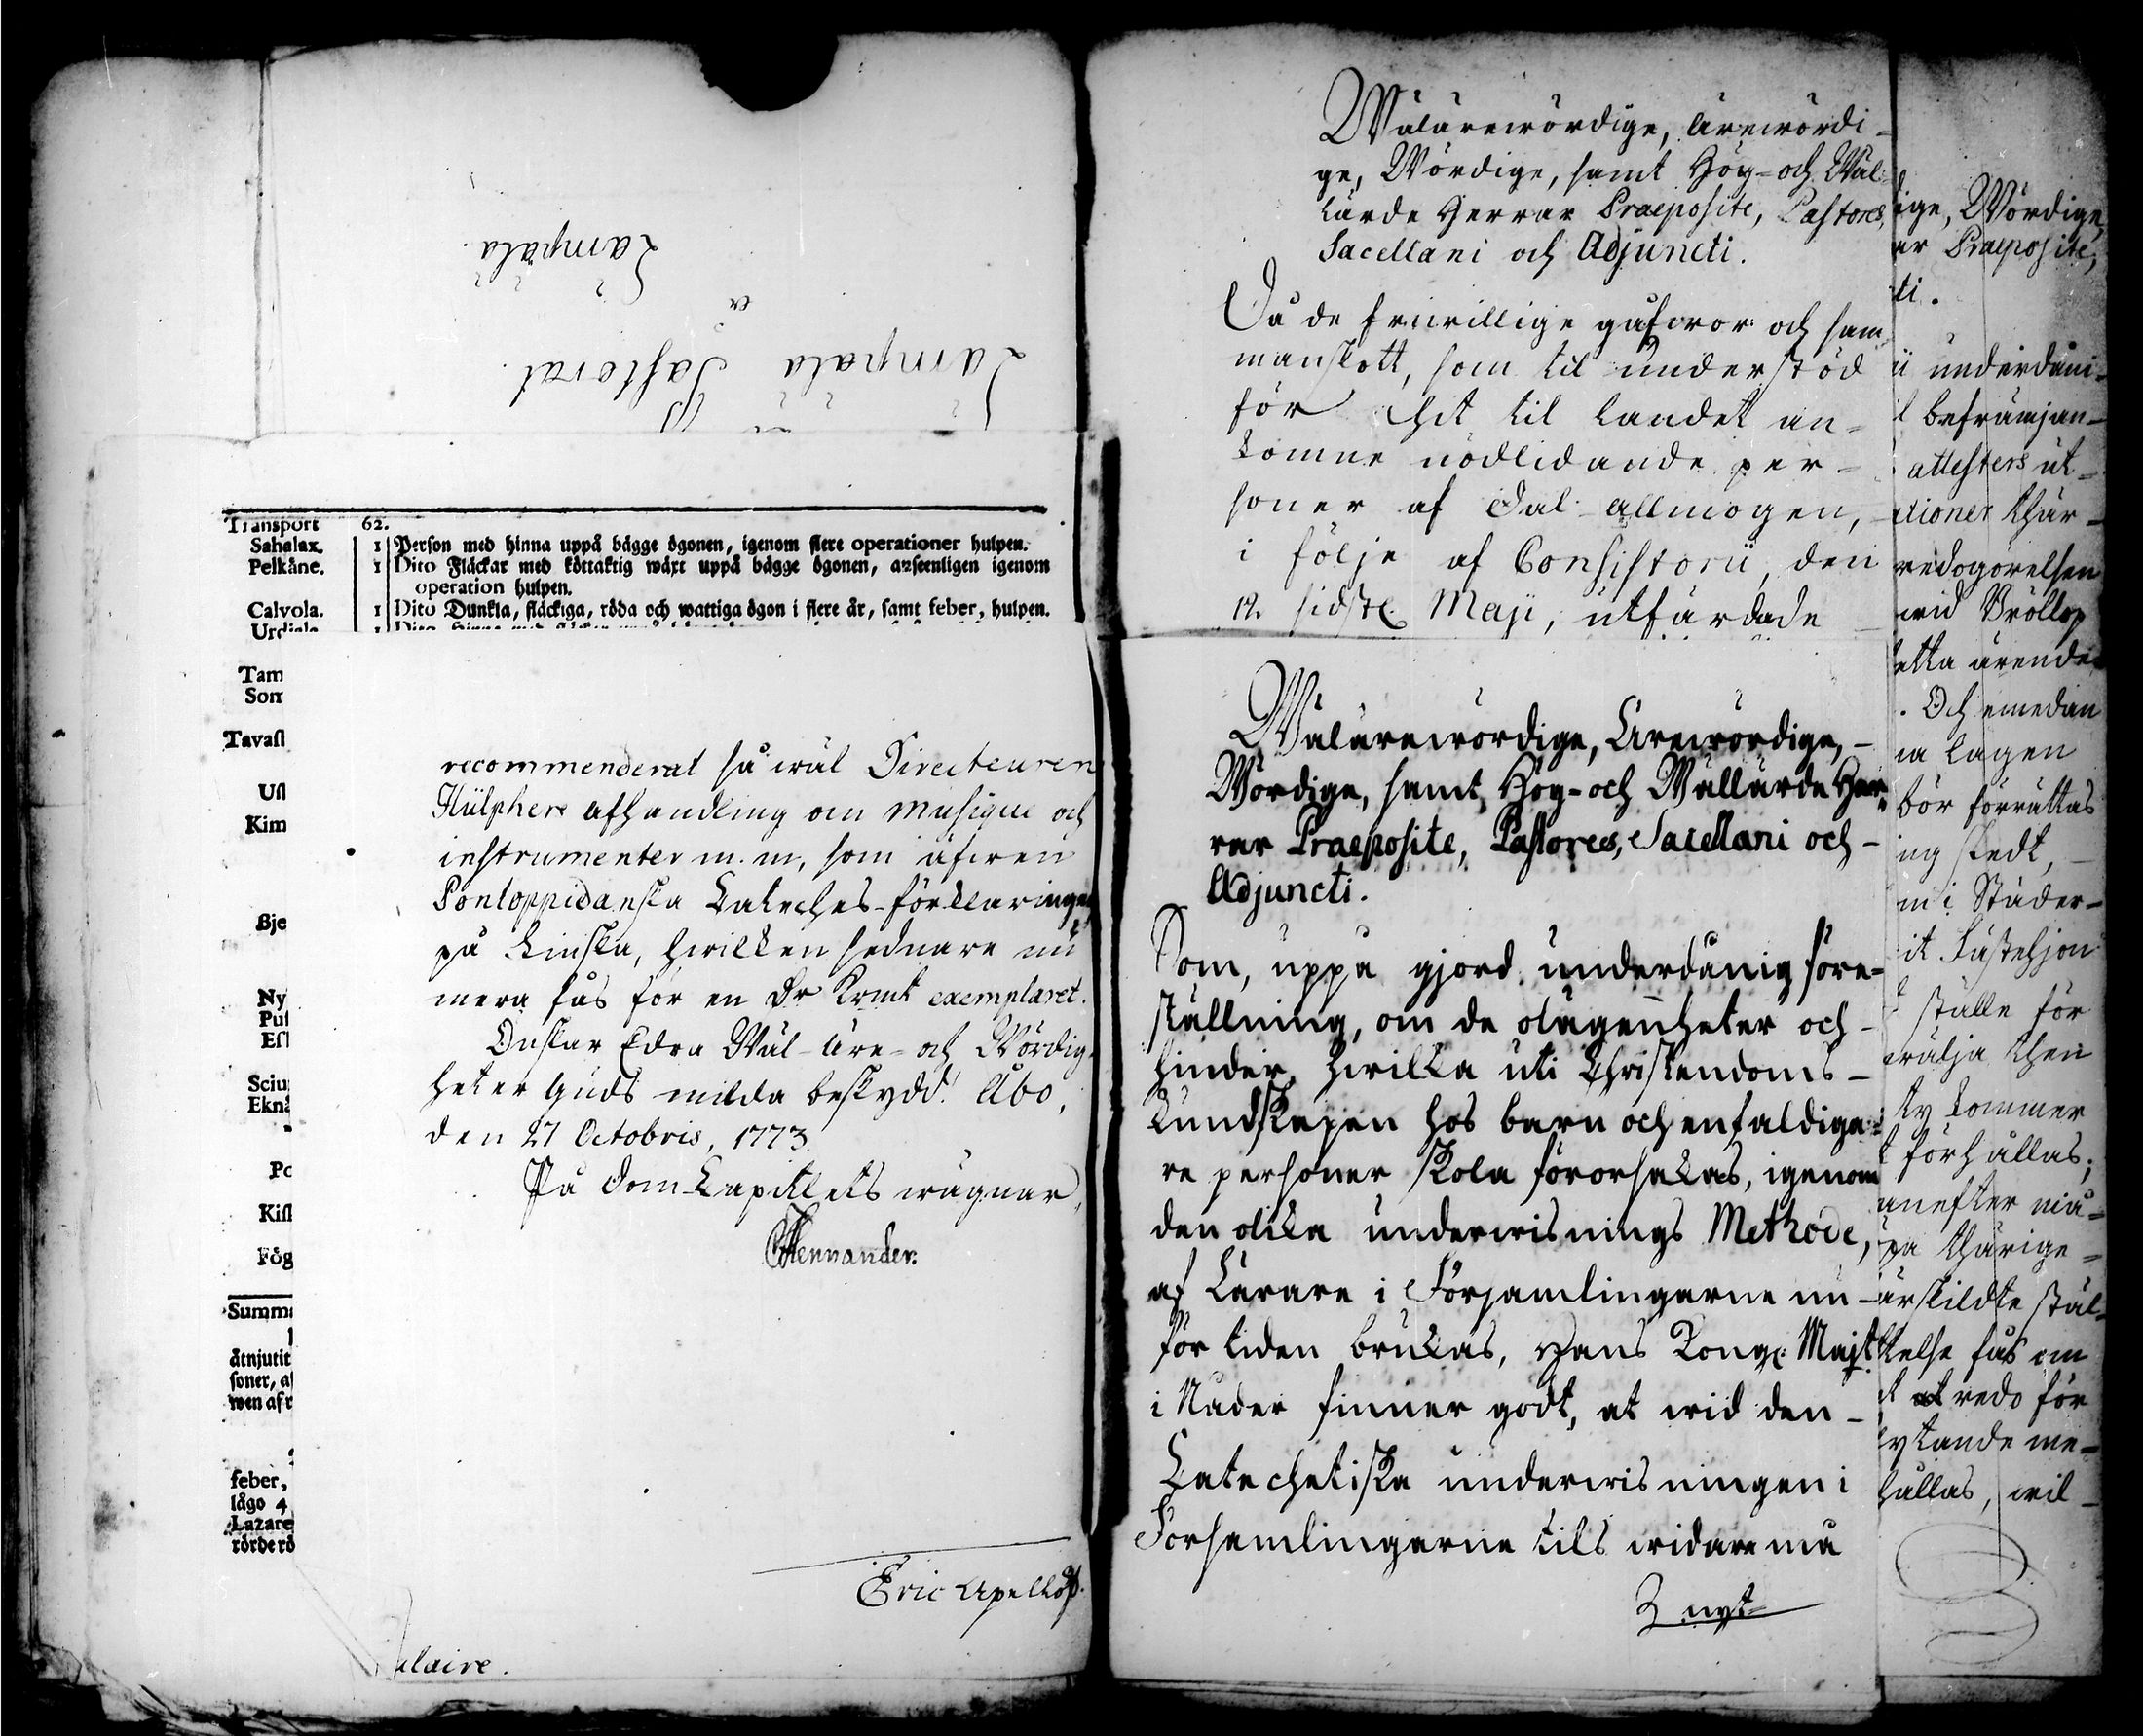 Lampala Pastorat.
Lampala.
Transport 62.
Sahalax. 1 Person med hinna uppå bägge ögonen, igenom flere operationer hulpen.
Pelkäne. 1 Dito Fläckar med köttaktig wäxt uppå bägge ögonen, anseenligen igenom
operation hulpen.
Calvola. 1 Dito Dunkla, fläckiga, röda och wattiga ögon i flere år, samt feber, hulpen.
Urdiala
Tam
Som
Tavast
Ul
Kim
Bje
Ny
Put
Est
Sciu
Eknä
Po
Kisl
Fög
Summa
åtnjutit
soner, af
wen af r
feber,
lågo 4
Lazare
rörde rö
recommenderat så wäl Directeuren
Hülphers afhandling om musique och
instrumenter m. m, som äfwen
Pontoppidanska Cateches-förklaringen
på Finska, hwilken sednare nu
mera fås för en Dr Krmt exemplaret.
Önskar Edra Wäl-Äre- och Wördig-
heter Guds milda beskydd! Åbo,
den 27 Octobris, 1773.
På Dom-Capitlets wägnar,
Mennander.
Eric Apellöf.
ulaire.
Wälärewördige, Ärewördi-
ge, Wördige, samt Hög- och Wäl-
lärde Herrar Praeposite, Pastores,
Sacellani och Adjuncti.
Då de friwillige gåfwor och sam-
manskott, som til understöd
för hit til landet an-
komne nödlidande per-
soner af Dal-allmogen,
i följe af Consistorii, den
12. sidstl. Maji, utfärdade
Wälärewördige, Ärewördige, -
Wördige, samt Hög- och Wällärde Her-
rar Praeposite, Pastores, Sacellani och -
Adjuncti.
Som, uppå gjord underdånig före-
ställning, om de olägenheter och -
hinder, hwilka uti Christendoms-
kundskapen hos barn och enfaldiga-
re personer skola förorsakas, igenom
den olika underwisnings Methode,
af Lärare i Församlingarne nu -
för tiden brukas, Hans Kongl. Majt
i Nåder finner godt, at wid den -
Catechetiska underwisningen i
Församlingarne tils widare må
nyt-
ige, Wördige,
ar Praeposite,
ti.
ii underdåni-
l befrämjan-
attesters ut-
ctioner thär-
redogörelsen
wid Bröllop
etta ärende
. Och emedan
na lagen
bör förrättas
ing skedt, -
m i Städer-
it Fästehjon
ställe för
wälja then
ty kommer
t förhållas;
anefter må-
pa thärige-
ärskildte stäl-
telse fås om
t redo för
lytande me-
hållas, wil-